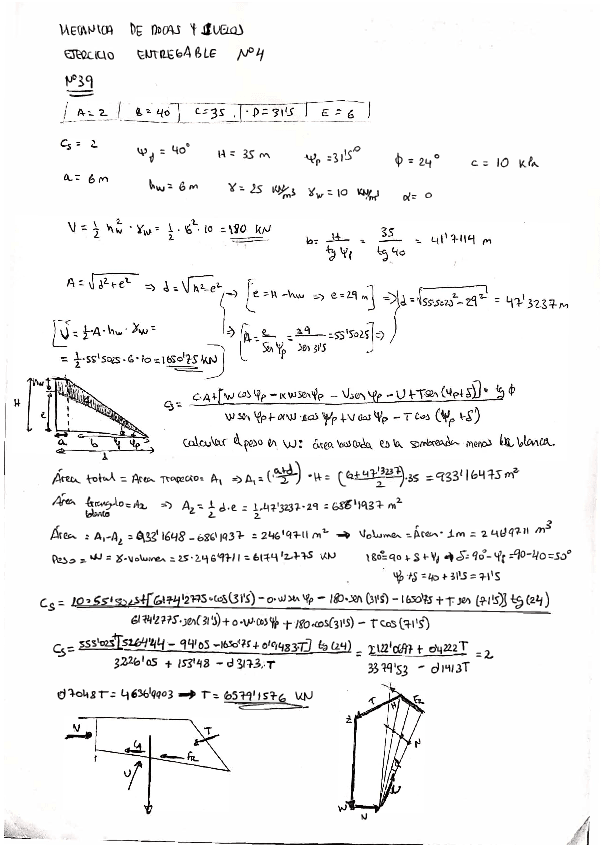 MECANICA DE ROCAS Y SUELOS
EJERCICIO ENTREGABLE Nº4
Nº39
A=2 | B=40 | C=35 | D=31'5 | E=6
Cs = 2 ψf = 40° H = 35 m ψp = 31'5° ϕ = 24° c = 10 KPa
a = 6 m hw = 6 m γ = 25 KN/m3 γw = 10 KN/m3 α = 0
V = 1/2 hw² · γw = 1/2 · 6² · 10 = 180 KN b = H/tg ψf = 35/tg 40 = 41'7114 m
A = √d²+e² ⇒ d = √A²-e² → [e = H-hw ⇒ e = 29 m] ⇒ d = √55'5025²-29² = 47'3237 m
U = 1/2 · A · hw · γw = ⇒ [A = e/sen ψp = 29/sen 31'5 = 55'5025] ⇒
= 1/2 · 55'5025 · 6 · 10 = 1650'75 KN
H hw e a b ψf ψp d
Cs = c·A+[W cos ψp - αW sen ψp - V sen ψp - U + T sen (ψp+δ)] · tg ϕ
W sen ψp + αW · cos ψp + V cos ψp - T cos (ψp + δ)
calcular el peso en W: área buscada es la sombreada menos la blanca.
Área total = Area trapecio = A1 ⇒ A1 = (a+d/2) · H = (6+47'3237/2) · 35 = 933'16475 m²
Área triangulo blanco = A2 ⇒ A2 = 1/2 d·e = 1/2 · 47'3237 · 29 = 686'1937 m²
Área = A1-A2 = 933'1648 - 686'1937 = 246'9711 m² → Volumen = Área · 1m = 246'9711 m³
Peso = W = γ · Volumen = 25 · 246'9711 = 6174'2775 KN 180 = 90 + δ + ψf → δ = 90 - ψf = 90 - 40 = 50°
ψp + δ = 40 + 31'5 = 71'5
Cs = 10·55'5025+[6174'2775 · cos (31'5) - 0 · W sen ψp - 180 · sen (31'5) - 1650'75 + T sen (71'5)] tg (24)
6174'2775 · sen (31'5) + 0 · W · cos ψp + 180 · cos (31'5) - T cos (71'5)
Cs = 555'025+[5264'44 - 94'05 - 1650'75 + 0'9483T] tg (24) = 2122'0697 + 0'4222T = 2
3226'05 + 153'48 - 0'3173 · T 3379'53 - 0'1413T
0'7048T = 4636'9903 → T = 6579'1576 KN
V T FR U
T H FR N U W V